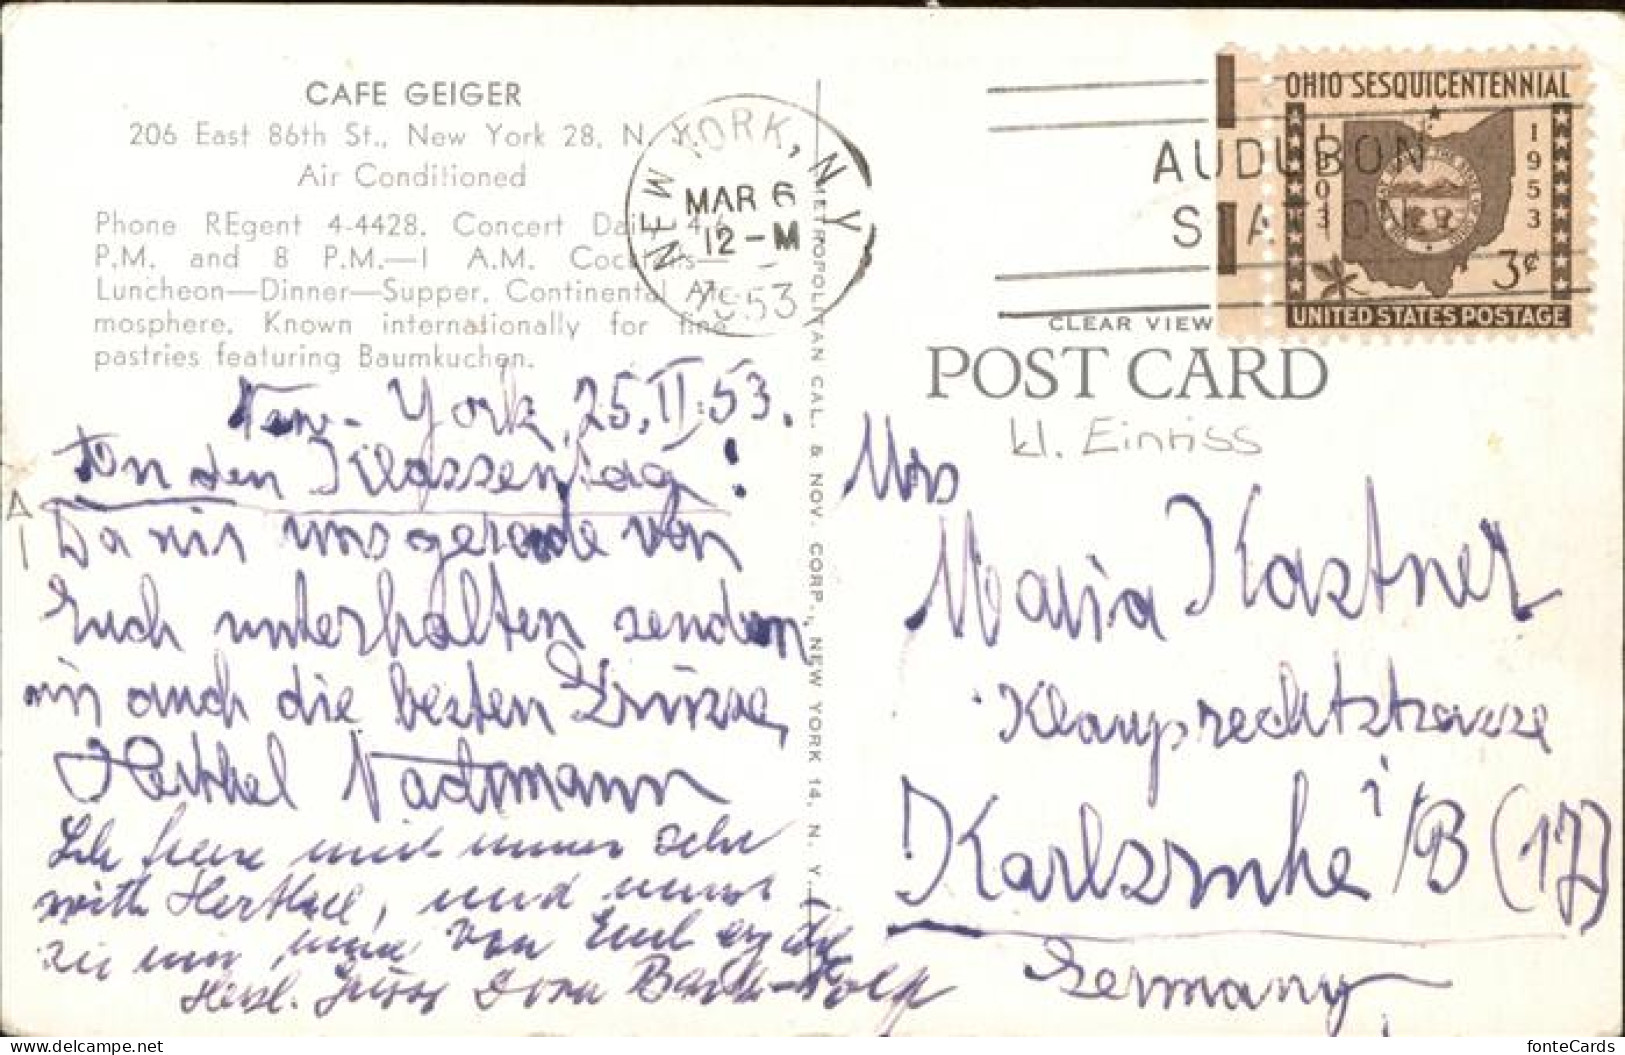 CAFE GEIGER
206 East 86th St., New York 28, N. Y.
Air Conditioned
Phone REgent 4-4428. Concert Daily 4-6
P.M. and 8 P.M.—1 A.M. Cocktails—
Luncheon—Dinner—Supper. Continental At-
mosphere. Known internationally for fine
pastries featuring Baumkuchen.
New-York, 25. II. 53.
An den Klassentag!
Da wir uns gerade von
Euch unterhalten senden
wir auch die besten Grüsse,
Herthel Nachmann
Ich freue mich immer sehr
with Herthel, und
zu mir, von Euch
Herzl. Grüsse Dora
METROPOLITAN CAL. & NOV. CORP., NEW YORK 14, N. Y.
NEW YORK, N.Y.
MAR 6
12-M
1953
AUDUBON
STATION
OHIO SESQUICENTENNIAL
1803
1953
3¢
UNITED STATES POSTAGE
CLEAR VIEW
POST CARD
kl. Einriss
Mrs
Maria Kastner
Klauprechtstrasse
Karlsruhe i/B (17)
Germany
fonteCards